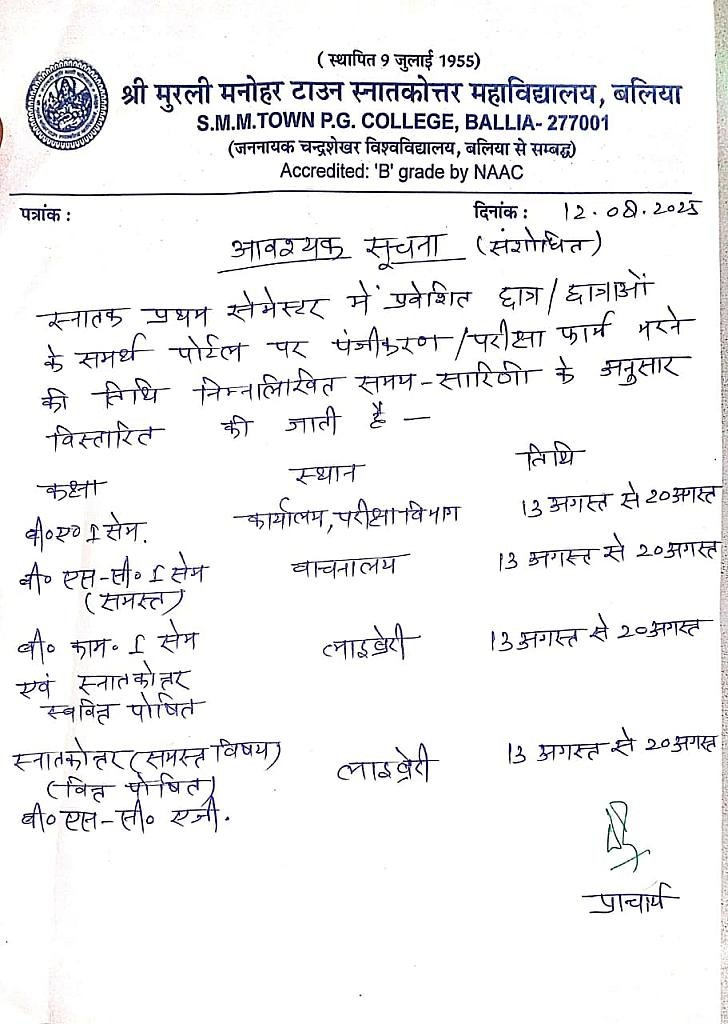 ( स्थापित 9 जुलाई 1955)
श्री मुरली मनोहर टाउन स्नातकोत्तर महाविद्यालय, बलिया
S.M.M.TOWN P.G. COLLEGE, BALLIA- 277001
(जननायक चन्द्रशेखर विश्वविद्यालय, बलिया से सम्बद्ध)
Accredited: 'B' grade by NAAC
पत्रांक : दिनांक : 12.08.2025
आवश्यक सूचना (संशोधित)
स्नातक प्रथम सेमेस्टर में प्रवेशित छात्र/छात्राओं
के समर्थ पोर्टल पर पंजीकरण/परीक्षा फार्म भरने
की तिथि निम्नलिखित समय-सारिणी के अनुसार
विस्तारित की जाती है —
कक्षा स्थान तिथि
बी०ए० I सेम. कार्यालय, परीक्षा विभाग 13 अगस्त से 20 अगस्त
बी० एस-सी० I सेम वाचनालय 13 अगस्त से 20 अगस्त
(समस्त)
बी० काम. I सेम लाइब्रेरी 13 अगस्त से 20 अगस्त
एवं स्नातकोत्तर
स्ववित्त पोषित
स्नातकोत्तर (समस्त विषय) लाइब्रेरी 13 अगस्त से 20 अगस्त
(वित्त पोषित)
बी० एस-सी० एजी.
प्राचार्य